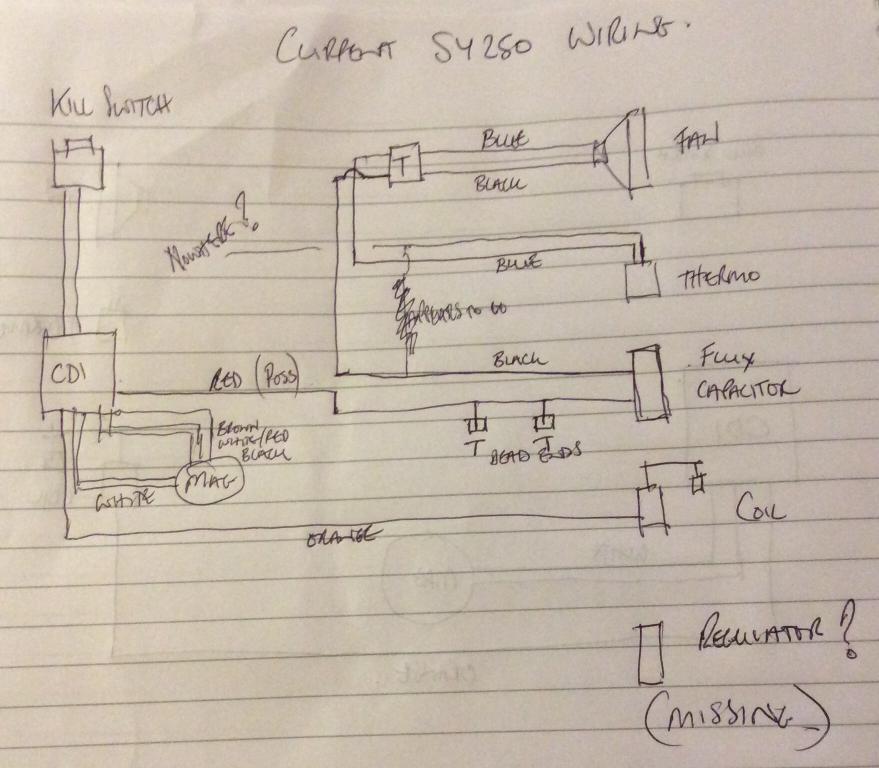 CURRENT SY250 WIRING.
KILL SWITCH
T
BLUE
BLACK
FAN
NOWHERE?
BLUE
THERMO
APPEARS TO GO
CDI
RED (POSS)
BLACK
FLUX
CAPACITOR
BROWN
WHITE/RED
BLACK
T DEAD ENDS T
MAG
WHITE
ORANGE
COIL
REGULATOR?
(MISSING)